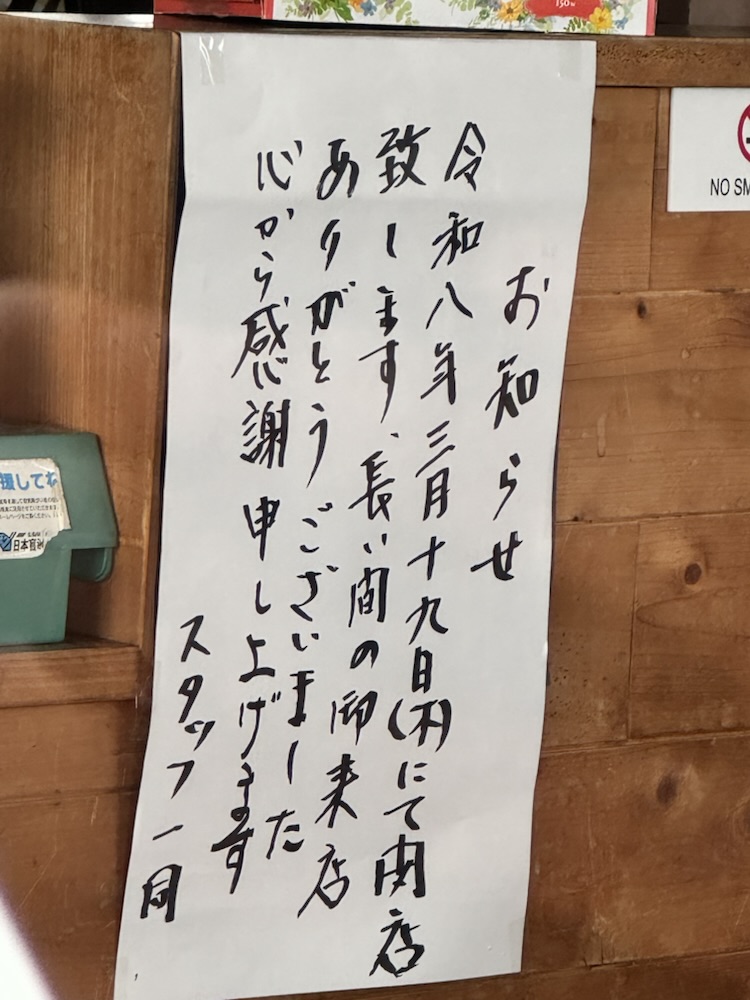 お知らせ
令和八年三月十九日(木)にて閉店
致します、長い間の御来店
ありがとうございました
心から感謝申し上げます
スタッフ一同
NO SM
援してね